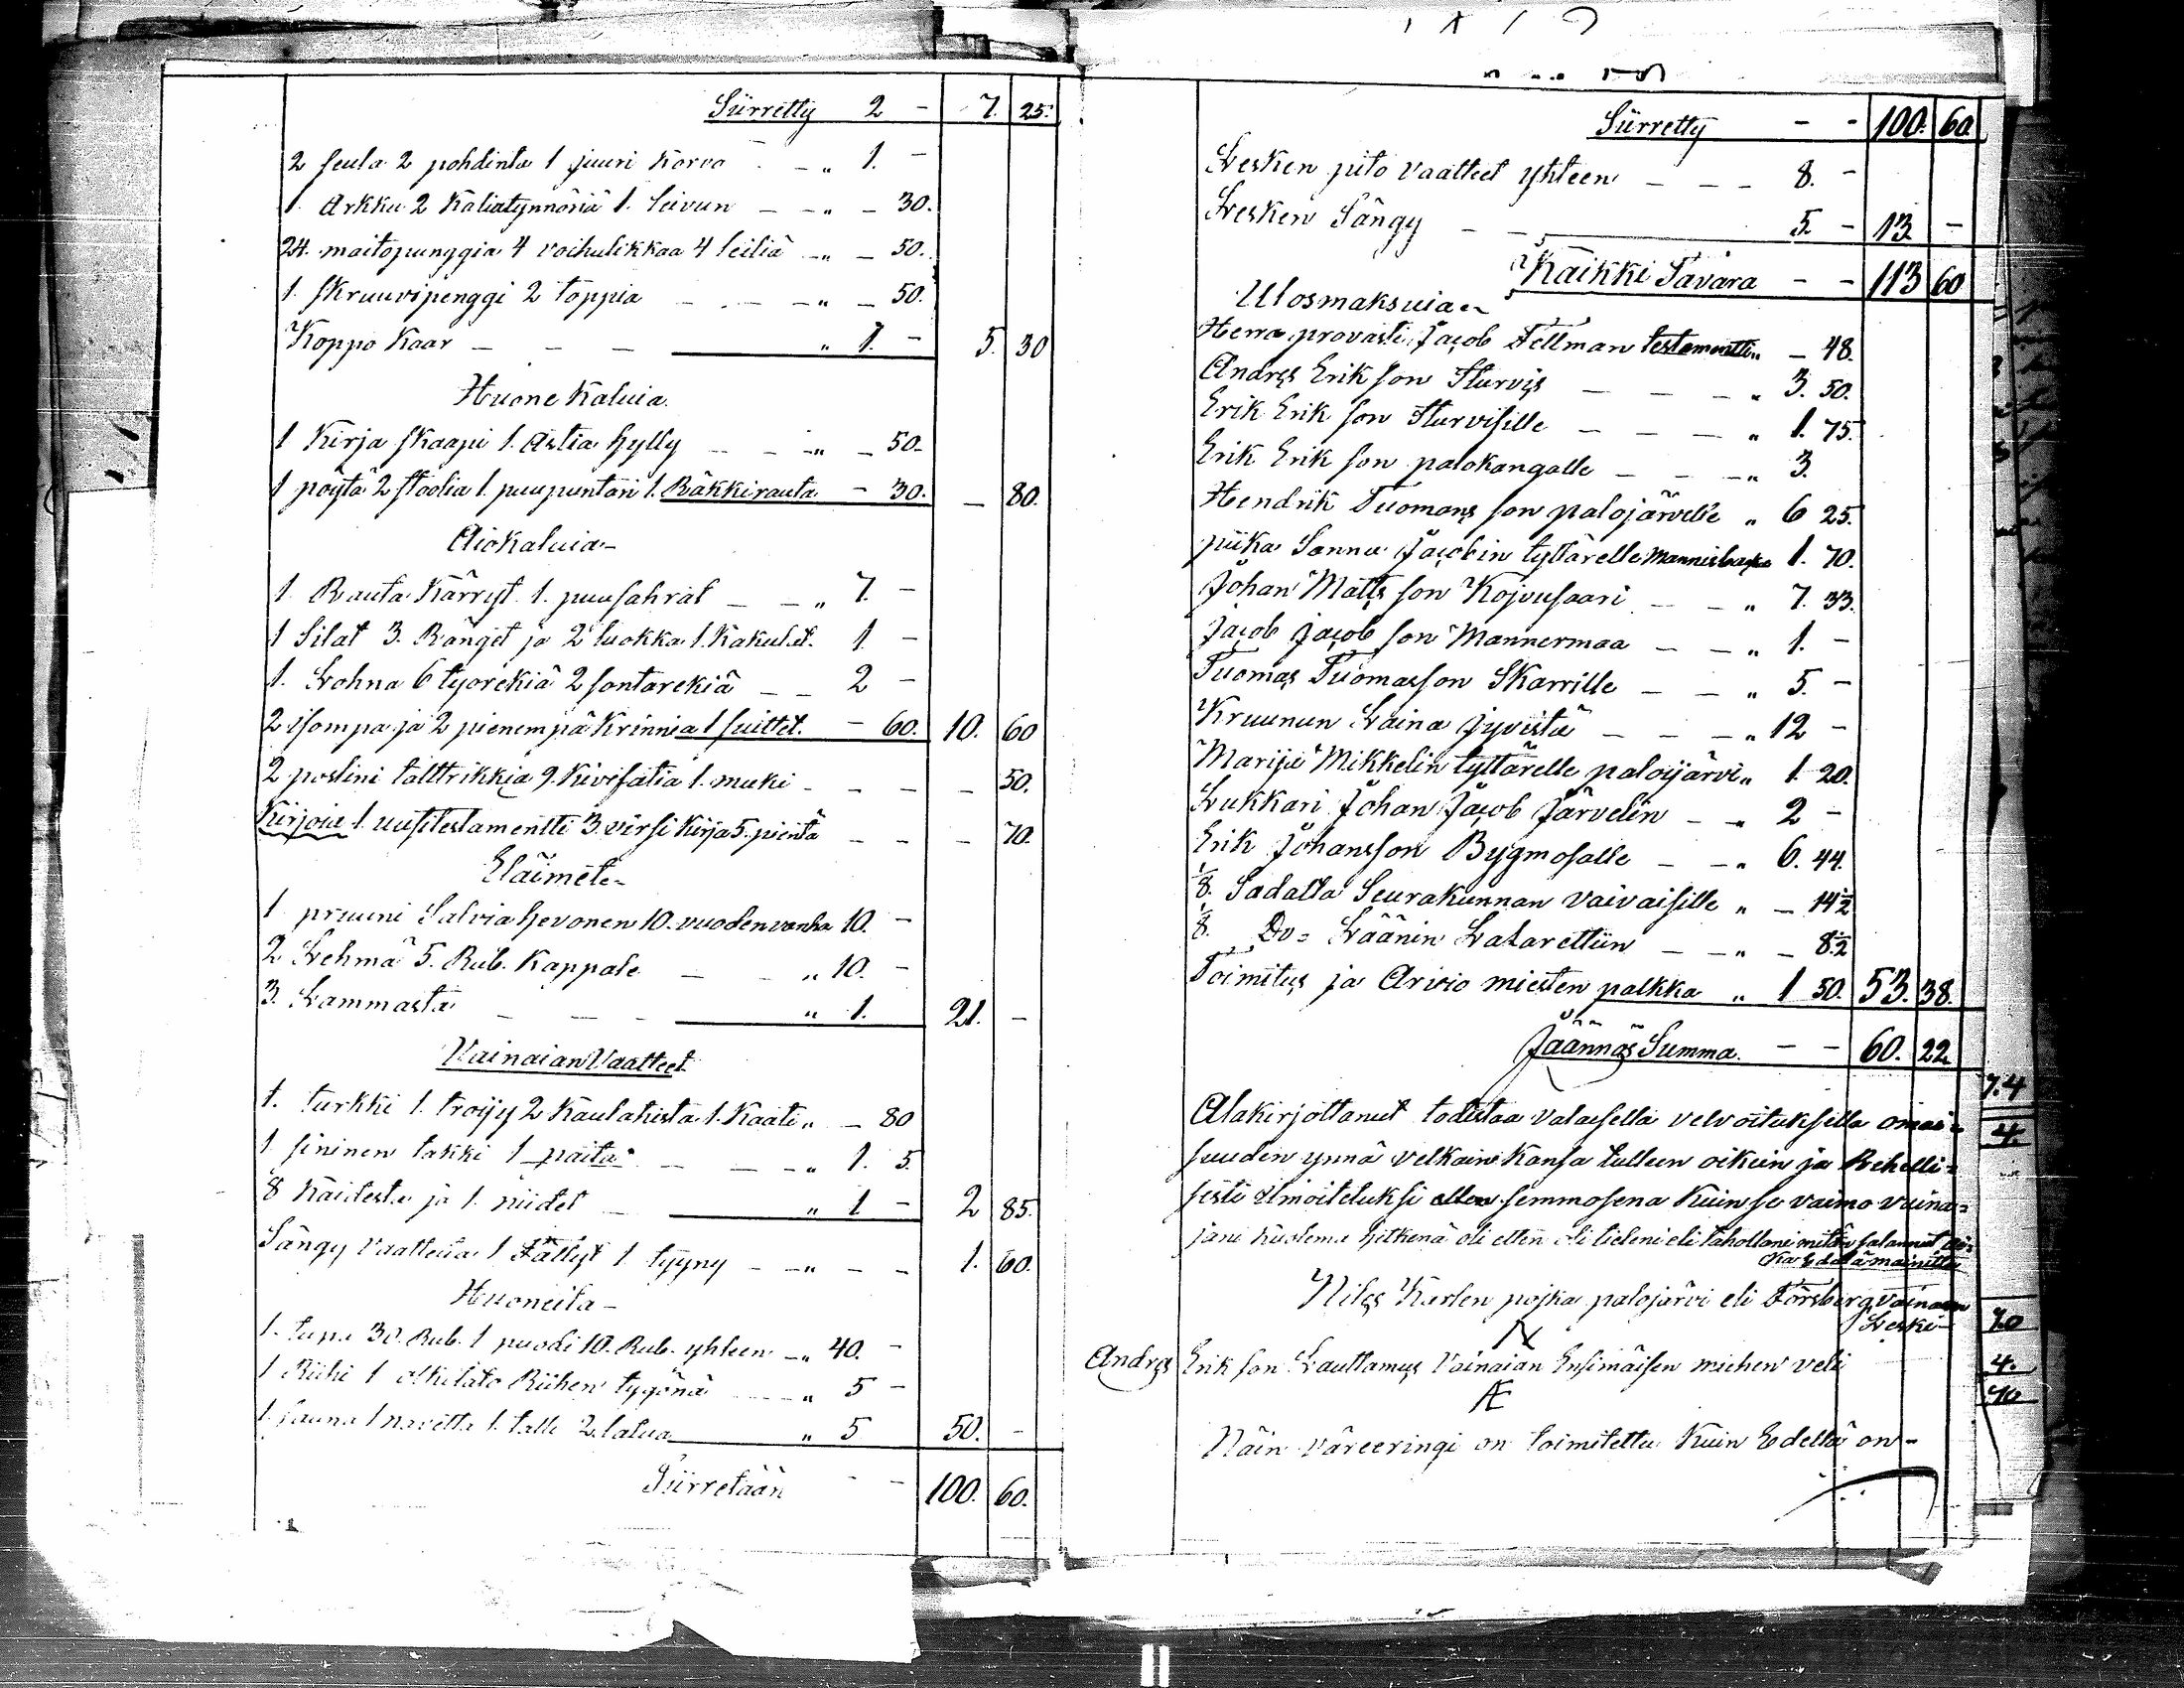 Siirretty 2 - 7. 25.
2 seula 2 pohdinta 1 juuri Korvo - - „ 1. -
1. Arkku 2 Kaliatynnöriä 1. leivun - - „ - 30.
24. maitopunggia 4 voihulikkaa 4 leiliä - „ - 50.
1. skruuvipenggi 2 toppia - - - „ - 50.
Koppo Kaar - - - „ 1. - 5. 30
Huone Kaluia.
1 Kirja skaapi 1. Astia hylly - - „ - 50-
1 pöytä 2 stoolia 1. puupuntari 1. Räkkirauta - 30. - 80.
Aiokaluia-
1. Rauta Kärryt 1. puusahrat - - „ 7. -
1 Silat 3. Ränget ja 2 luokka 1. Kakulat. 1. -
1. Lohna 6 työrekiä 2 sontarekiä - - 2 -
2 isompa ja 2 pienempä Krinnia 1 suittet. - 60. 10. 60
2 poslini talttrikkia 9. Kivifatia 1. muki - - - - 50.
Kirjoia 1. uusitestamentti 3. virsi Kirja 5. pientä - - - 70.
Eläimet-
1 pruuni Salvia hevonen 10. vuoden vanha 10. -
2 Lehmä 5. Rub. Kappale - - „ 10. -
3. Lammasta - - - „ 1. 21. -
Vainaian Vaatteet
1. turkki 1. troijy 2 Kaulahista 1. Kaati „ - 80
1 sininen takki 1 paita - - - „ 1. 5.
8 Kaidesta ja 1. niidet - „ 1 - 2 85.
Sängy vaatteita 1 Fällyt 1 tyyny - - „ - - 1. 60.
Huoneita-
1. tupa 30. Rub. 1 puodi 10. Rub. yhteen - „ 40. -
1 Riihi 1 olkilato Riihen tygönä - - „ 5 -
1. sauna 1 navetta 1. talli 2. latua „ 5 50. -
Siirretään - - 100. 60.
Siirretty - - 100. 60
Lesken pito vaatteet yhteen - - - 8. -
Lesken Sängy - - 5 - 13 -
Kaikki Tavara - - 113 60
Ulosmaksuia-
Herra provasti Jacob Fellman testamentti „ - 48.
Andrs Erik son Sturvis - - - „ 3. 50.
Erik Erik son Sturvisille - - - „ 1. 75.
Erik Erik son palokangalle - - - „ 3.
Hendrik Tuomans son palojärvelle „ 6 25.
piika Sanna Jacobin tyttärelle 1. 70.
Johan Matts son Kojvusaari - - „ 7. 33.
Jacob Jacob son Mannermaa - - „ 1. -
Tuomas Tuomasson Skarrille - - „ 5. -
Kruunun Laina Jyvistä - - - „ 12 -
Marija Mikkelin tyttärelle paloijärvi „ 1. 20.
Lukkari Johan Jacob Järvelin - „ 2 -
Erik Johansson Bygmosalle - - „ 6. 44.
1/8. Sadalta Seurakunnan vaivaisille „ - 14 1/2
1/8. Do= Läänin Latarettiin - - „ - 8 1/2
Toimitus ja Arvio miesten palkka „ 1 50. 53. 38.
Jäännös Summa. - - 60. 22
Alakirjottanut todistaa valaisella velvoituksella omai=
suuden ynnä velkain Kansa tulleen oikein ja Rehelli=
sesti ilmoitetuksi semmosena Kuin se vaimo vaina=
jani Kuolema hetkenä oli etten oli tieteni eli tahollani mitän salannut
Ka Edalä mainittu
Nils Karlen pojka palojärvi eli Forsberg, vainaan
Leski-
N
Andrs Erik son Lauttamus vainaian Ensimäisen miehen veli
Æ
Näin väreeringi on toimitettu Kuin Edellä on-
7.4
4
70
4.
70